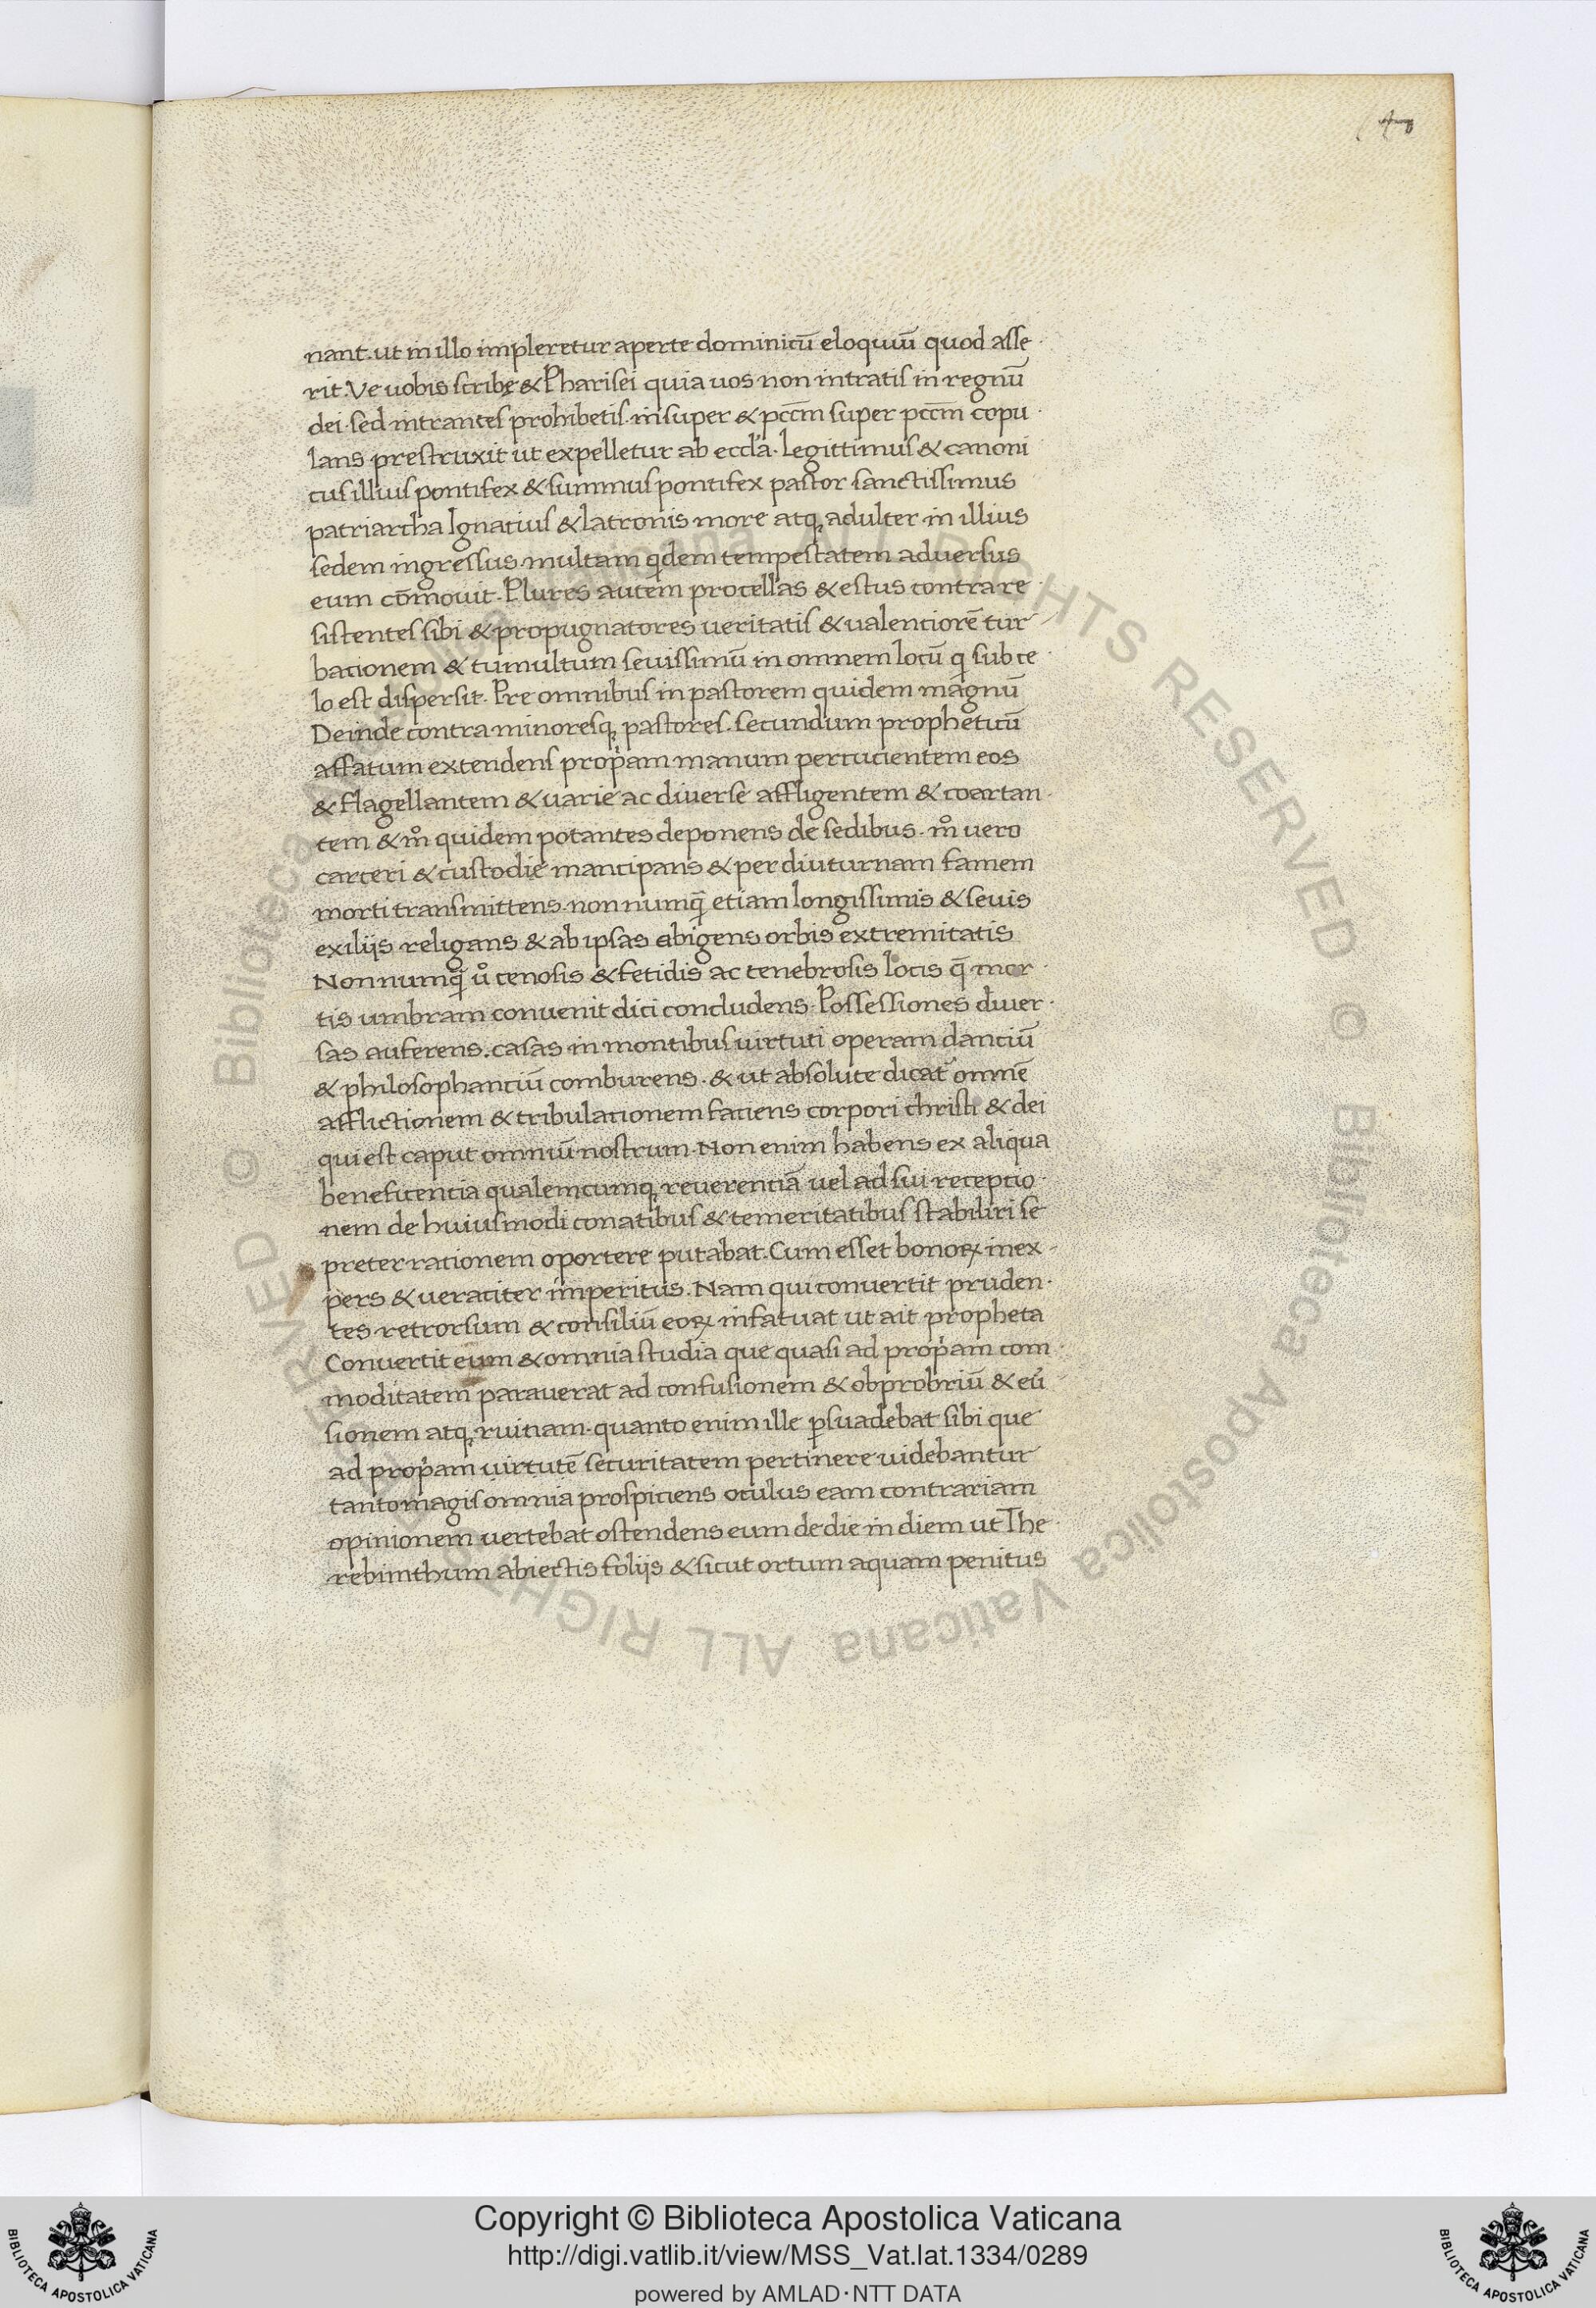 nant. ut in illo impleretur aperte dominicū eloquiū quod asse
rit. Ve uobis scribę & Pharisei quia uos non intratis in regnū
dei. sed intrantes prohibetis. insuper & pccm̄ super pccm̄ copu
lans prestruxit ut expelletur ab eccl̄a. Legittimus & canoni
cus illius pontifex & summus pontifex pastor sanctissimus
patriarcha Ignatius & latronis more atq; adulter in illius
sedem ingressus. multam qdem tempestatem adversus
eum cōmouit. Plures autem procellas & estus contra re
sistentes sibi & propugnatores ueritatis & ualentiorē tur
bationem & tumultum seuissimū in omnem locū q sub ce
lo est dispersit. Pre omnibus in pastorem quidem magnū
Deinde contra minoresq; pastores. secundum propheticū
affatum extendens prop̄am manum percucientem eos
& flagellantem & uarie ac diuerse affligentem & coartan
tem & m̊ quidem potantes deponens de sedibus. m̊ uero
carceri & custodie mancipans & per diuturnam famem
morti transmittens. non numq̄ etiam longissimis & seuis
exilijs religans & ab ipsas abigens orbis extremitatis
Non numq̄ ů cenosis & fetidis ac tenebrosis locis q̄ mor
tis umbram conuenit dici concludens. Possessiones diuer
sas auferens. casas in montibus uirtuti operam danciū
& philosophanciū comburens. & ut absolute dicat̄ omnē
afflictionem & tribulationem faciens corpori christi & dei
qui est caput omniū nostrum. Non enim habens ex aliqua
beneficencia qualemcumq; reuerentiā uel ad sui receptio
nem de huiusmodi conatibus & temeritatibus stabiliri se
preter rationem oportere putabat. Cum esset bonoꝝ inex
pers & ueraciter imperitus. Nam qui conuertit pruden
tes retrorsum & consiliū eoꝝ infatuat ut ait propheta
Conuertit eum & omnia studia que quasi ad prop̄am com
moditatem parauerat ad confusionem & obprobriū & eu̓
sionem atq; ruinam. quanto enim ille p̱suadebat sibi que
ad prop̄am uirtutē securitatem pertinere uidebantur
tanto magis omnia prospiciens oculus eam contrariam
opinionem uertebat ostendens eum de die in diem ut The
rebinthum abiectis folijs & sicut ortum aquam penitus
Copyright © Biblioteca Apostolica Vaticana
http://digi.vatlib.it/view/MSS_Vat.lat.1334/0289
powered by AMLAD·NTT DATA